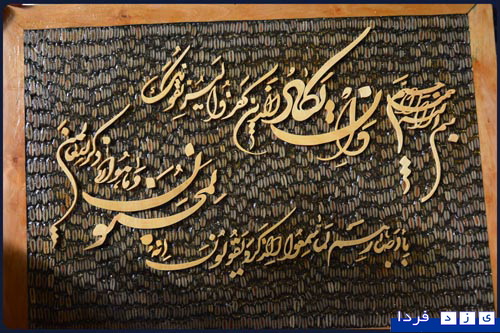 بسم الله الرحمن الرحیم
وان یکاد الذین کفروا لیزلقونک
بابصارهم لما سمعوا الذکر ویقولون انه
لمجنون وما هو الا ذکر للعالمین
یزد فردا